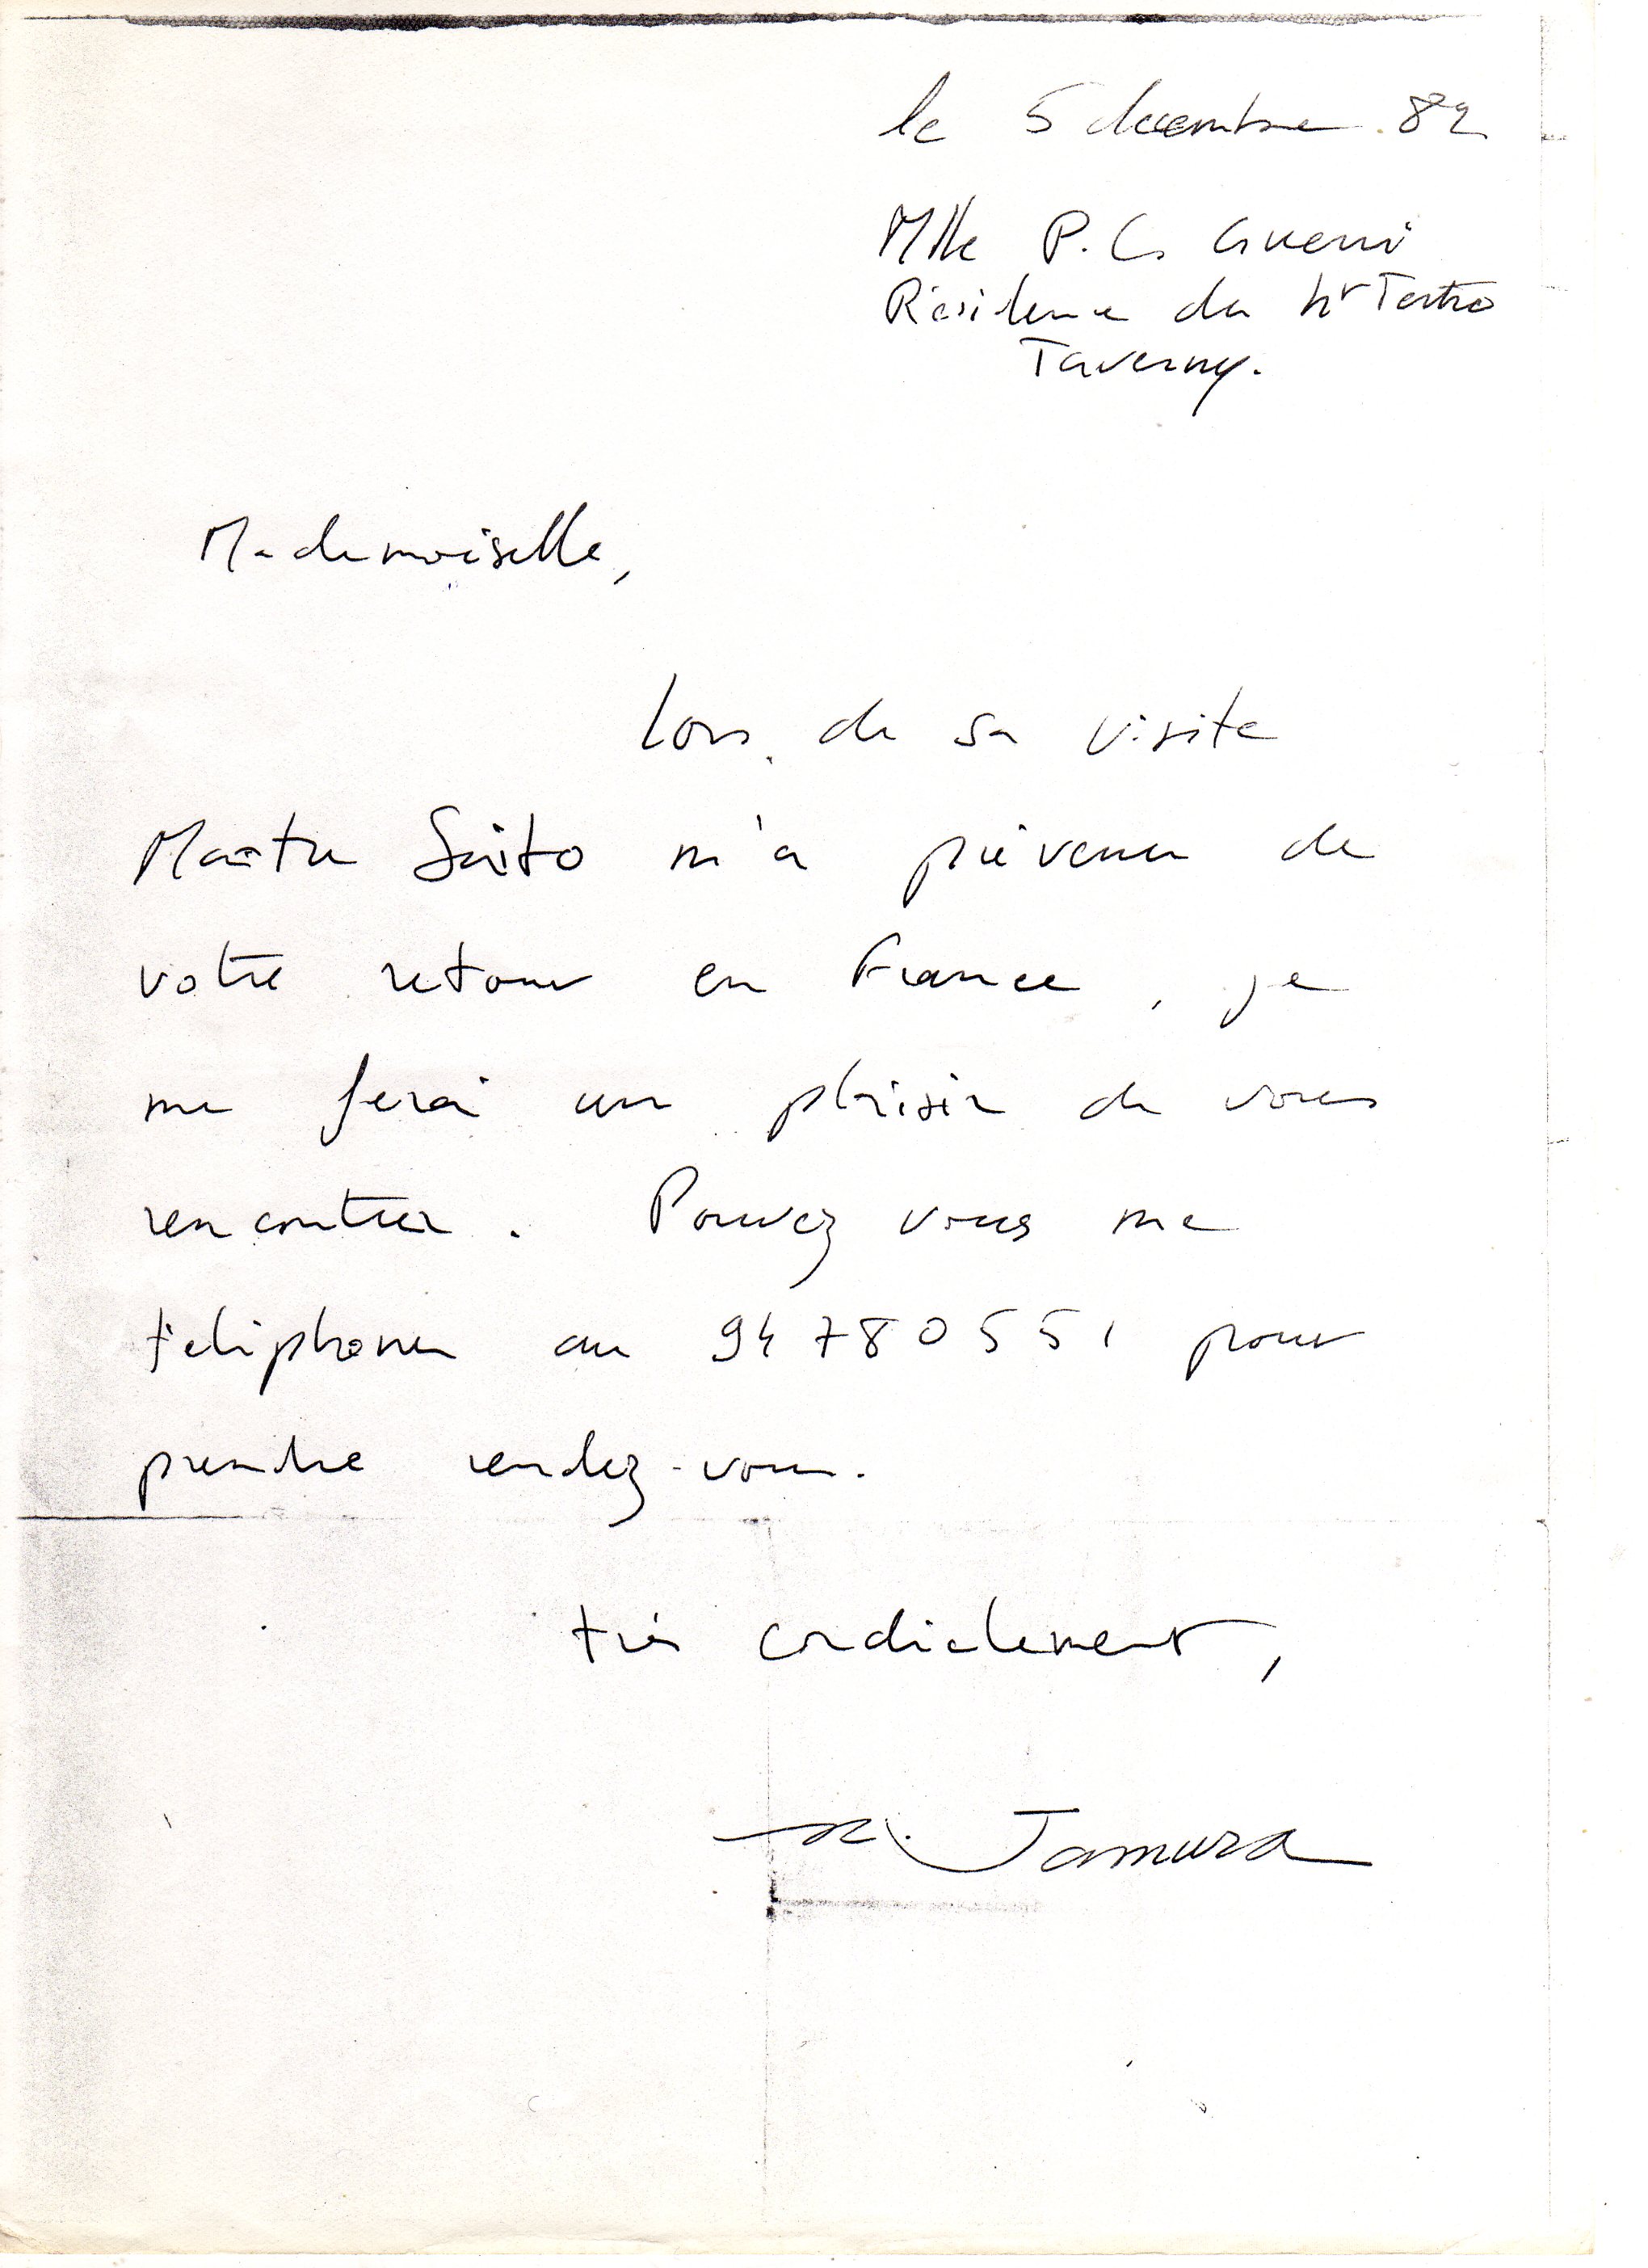 le 5 decembre 82
Mlle P. C. Guerri
Résidence du Ht Tertre
Taverny.
Mademoiselle,
Lors de sa visite
Maître Saito m'a prévenu de
votre retour en France, je
me ferai un plaisir de vous
rencontrer. Pouvez vous me
téléphoner au 94 780551 pour
prendre rendez-vous.
très cordialement,
Tamura